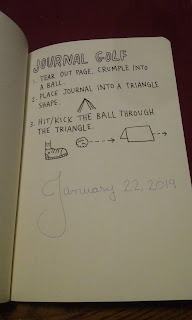 JOURNAL GOLF
1. TEAR OUT PAGE, CRUMPLE INTO
A BALL.
2. PLACE JOURNAL INTO A TRIANGLE
SHAPE.
3. HIT/KICK THE BALL THROUGH
THE TRIANGLE.
January 22, 2019